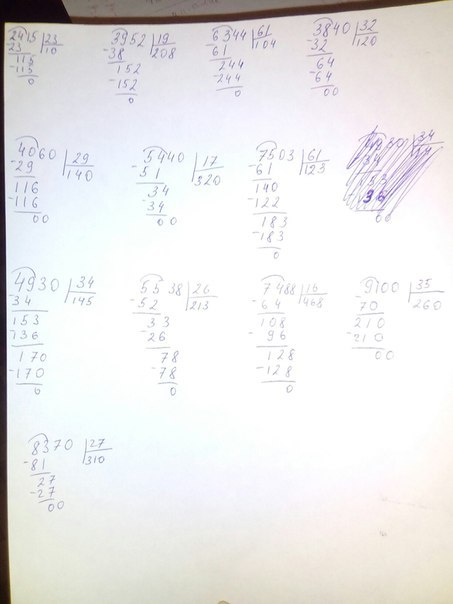 2415 23
-23 10
115
-115
0
3952 19
-38 208
152
-152
0
6344 61
-61 104
244
-244
0
3840 32
-32 120
64
-64
00
4060 29
-29 140
116
-116
00
5440 17
-51 320
34
-34
00
7503 61
-61 123
140
-122
183
-183
0
34
36
00
4930 34
-34 145
153
-136
170
-170
0
5538 26
-52 213
33
-26
78
-78
0
7488 16
-64 468
108
-96
128
-128
0
9100 35
-70 260
210
-210
00
8370 27
-81 310
27
-27
00